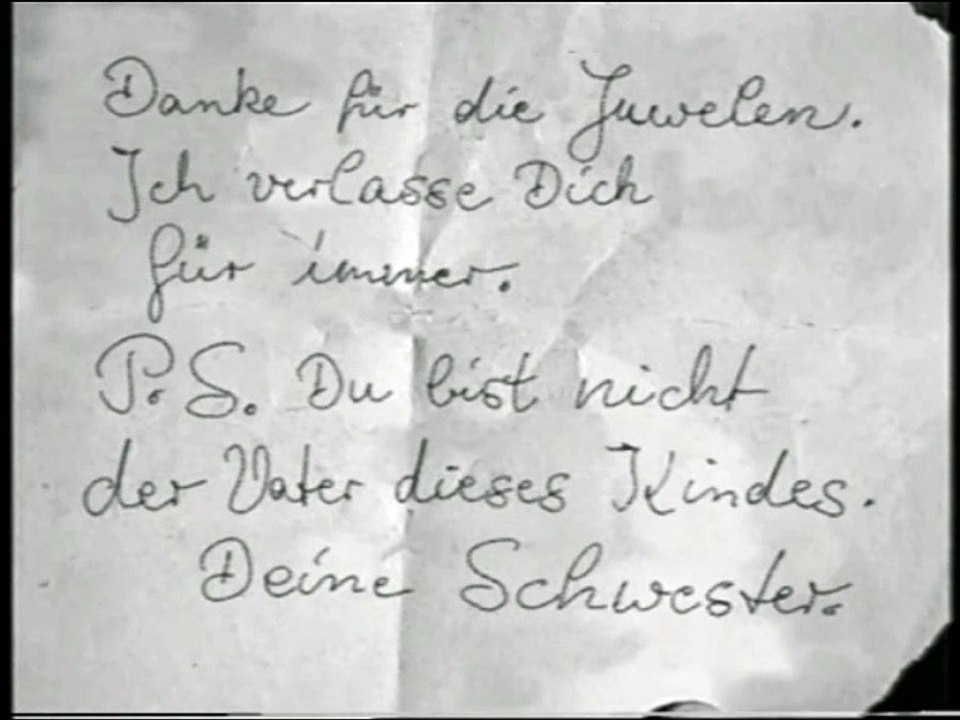 Danke für die Juwelen.
Ich verlasse Dich
für immer.
P.S. Du bist nicht
der Vater dieses Kindes.
Deine Schwester.